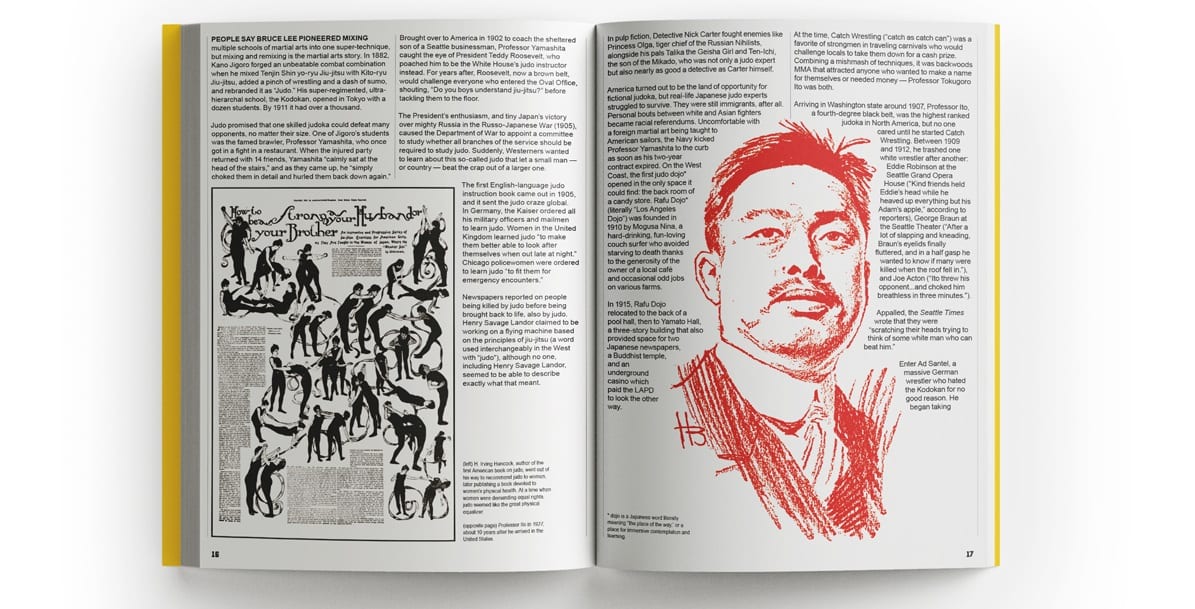 PEOPLE SAY BRUCE LEE PIONEERED MIXING
multiple schools of martial arts into one super-technique,
but mixing and remixing is the martial arts story. In 1882,
Kano Jigoro forged an unbeatable combat combination
when he mixed Tenjin Shin yo-ryu Jiu-jitsu with Kito-ryu
Jiu-jitsu, added a pinch of wrestling and a dash of sumo,
and rebranded it as “Judo.” His super-regimented, ultra-
hierarchal school, the Kodokan, opened in Tokyo with a
dozen students. By 1911 it had over a thousand.
Judo promised that one skilled judoka could defeat many
opponents, no matter their size. One of Jigoro’s students
was the famed brawler, Professor Yamashita, who once
got in a fight in a restaurant. When the injured party
returned with 14 friends, Yamashita “calmly sat at the
head of the stairs,” and as they came up, he “simply
choked them in detail and hurled them back down again.”
How to
beat
Strong
Your Husband
or
your Brother
16
Brought over to America in 1902 to coach the sheltered
son of a Seattle businessman, Professor Yamashita
caught the eye of President Teddy Roosevelt, who
poached him to be the White House’s judo instructor
instead. For years after, Roosevelt, now a brown belt,
would challenge everyone who entered the Oval Office,
shouting, “Do you boys understand jiu-jitsu?” before
tackling them to the floor.
The President’s enthusiasm, and tiny Japan’s victory
over mighty Russia in the Russo-Japanese War (1905),
caused the Department of War to appoint a committee
to study whether all branches of the service should be
required to study judo. Suddenly, Westerners wanted
to learn about this so-called judo that let a small man —
or country — beat the crap out of a larger one.
The first English-language judo
instruction book came out in 1905,
and it sent the judo craze global.
In Germany, the Kaiser ordered all
his military officers and mailmen
to learn judo. Women in the United
Kingdom learned judo “to make
them better able to look after
themselves when out late at night.”
Chicago policewomen were ordered
to learn judo “to fit them for
emergency encounters.”
Newspapers reported on people
being killed by judo before being
brought back to life, also by judo.
Henry Savage Landor claimed to be
working on a flying machine based
on the principles of jiu-jitsu (a word
used interchangeably in the West
with “judo”), although no one,
including Henry Savage Landor,
seemed to be able to describe
exactly what that meant.
(left) H. Irving Hancock, author of the
first American book on judo, went out of
his way to recommend judo to women,
later publishing a book devoted to
women’s physical health. At a time when
women were demanding equal rights,
judo seemed like the great physical
equalizer.
(opposite page) Professor Ito in 1927,
about 10 years after he arrived in the
United States.
In pulp fiction, Detective Nick Carter fought enemies like
Princess Olga, tiger chief of the Russian Nihilists,
alongside his pals Talika the Geisha Girl and Ten-Ichi,
the son of the Mikado, who was not only a judo expert
but also nearly as good a detective as Carter himself.
America turned out to be the land of opportunity for
fictional judoka, but real-life Japanese judo experts
struggled to survive. They were still immigrants, after all.
Personal bouts between white and Asian fighters
became racial referendums. Uncomfortable with
a foreign martial art being taught to
American sailors, the Navy kicked
Professor Yamashita to the curb
as soon as his two-year
contract expired. On the West
Coast, the first judo dojo*
opened in the only space it
could find: the back room of
a candy store. Rafu Dojo*
(literally “Los Angeles
Dojo”) was founded in
1910 by Mogusa Nina, a
hard-drinking, fun-loving
couch surfer who avoided
starving to death thanks
to the generosity of the
owner of a local café
and occasional odd jobs
on various farms.
In 1915, Rafu Dojo
relocated to the back of a
pool hall, then to Yamato Hall,
a three-story building that also
provided space for two
Japanese newspapers,
a Buddhist temple,
and an
underground
casino which
paid the LAPD
to look the other
way.
HB
* dojo is a Japanese word literally
meaning “the place of the way,” or a
place for immersive contemplation and
learning.
At the time, Catch Wrestling (“catch as catch can”) was a
favorite of strongmen in traveling carnivals who would
challenge locals to take them down for a cash prize.
Combining a mishmash of techniques, it was backwoods
MMA that attracted anyone who wanted to make a name
for themselves or needed money — Professor Tokugoro
Ito was both.
Arriving in Washington state around 1907, Professor Ito,
a fourth-degree black belt, was the highest ranked
judoka in North America, but no one
cared until he started Catch
Wrestling. Between 1909
and 1912, he trashed one
white wrestler after another:
Eddie Robinson at the
Seattle Grand Opera
House (“Kind friends held
Eddie’s head while he
heaved up everything but his
Adam’s apple,” according to
reporters), George Braun at
the Seattle Theater (“After a
lot of slapping and kneading,
Braun’s eyelids finally
fluttered, and in a half gasp he
wanted to know if many were
killed when the roof fell in.”),
and Joe Acton (“Ito threw his
opponent...and choked him
breathless in three minutes.”).
Appalled, the Seattle Times
wrote that they were
“scratching their heads trying to
think of some white man who can
beat him.”
Enter Ad Santel, a
massive German
wrestler who hated
the Kodokan for no
good reason. He
began taking
17